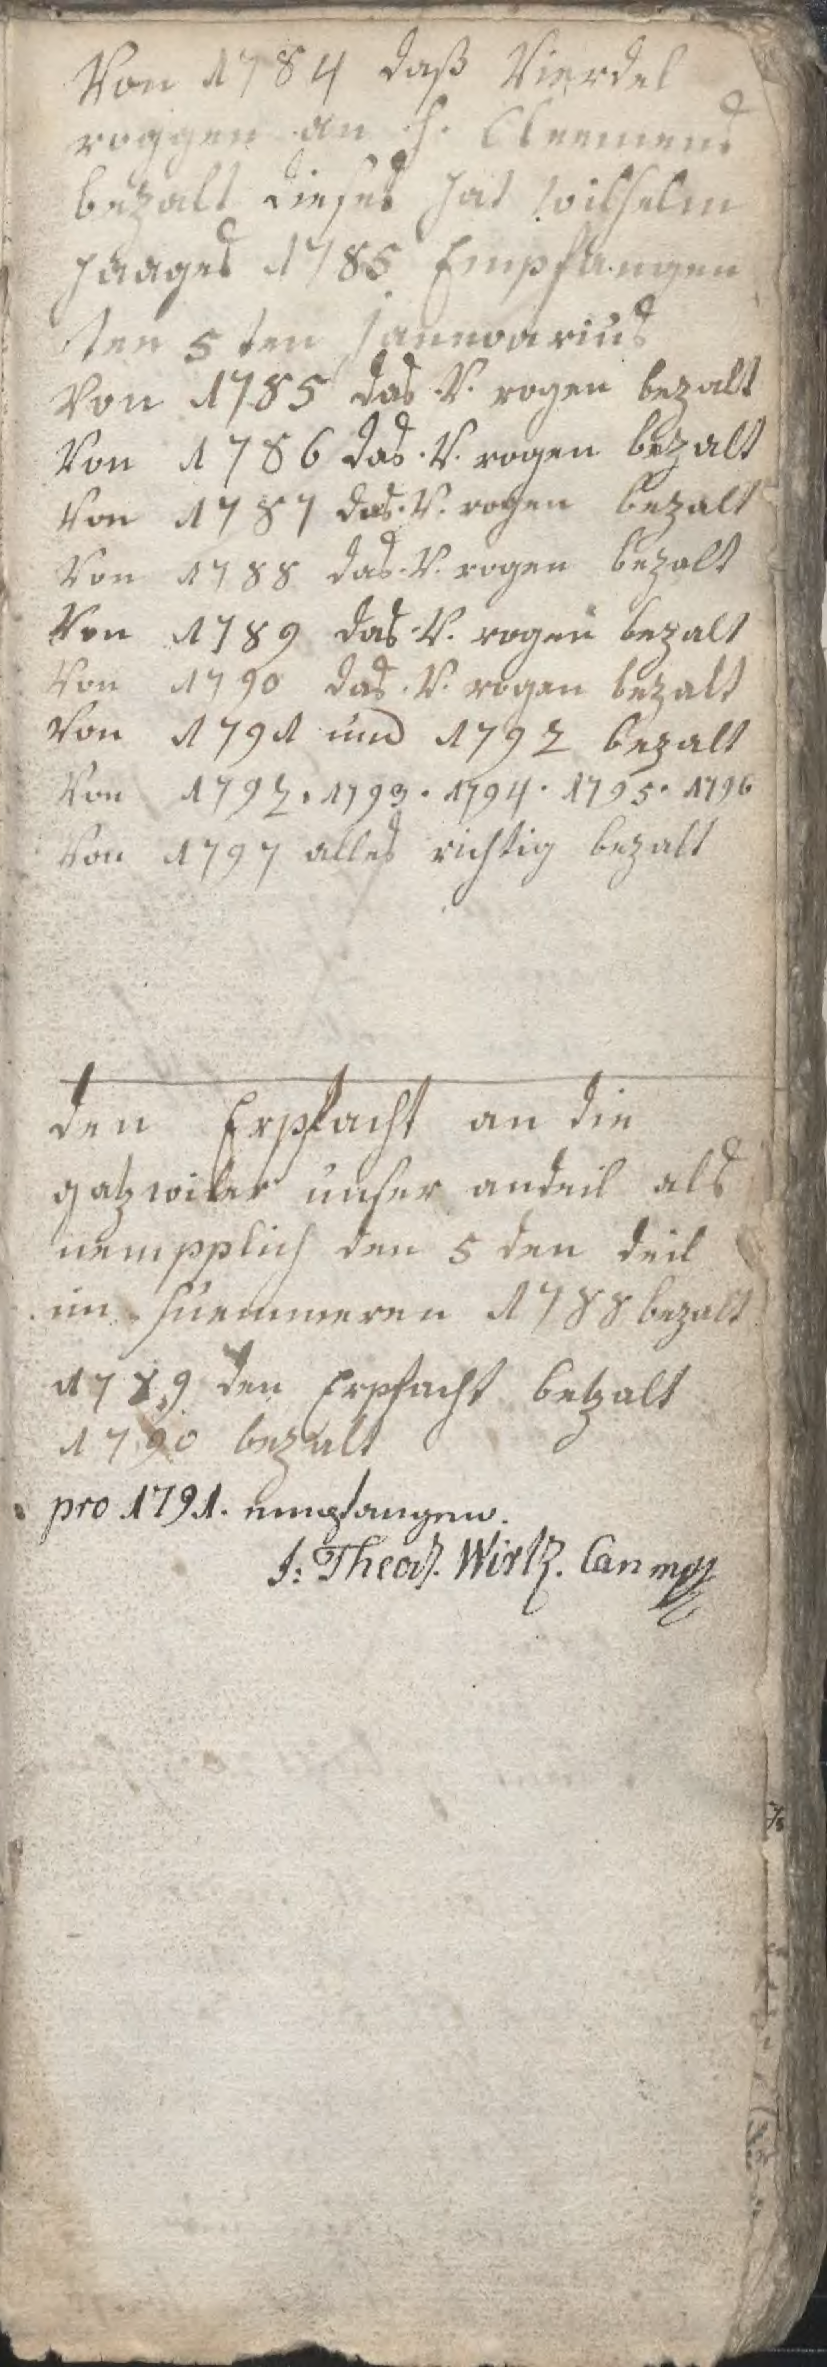 Von 1784 daß Vierdel
roggen an H. Cleemens
bezalt dieses hat wilhelm
haages 1785 Empfangen
ten 5 ten jannvarius
Von 1785 das V. rogen bezalt
Von 1786 das V. rogen bezalt
Von 1787 das V. rogen bezalt
Von 1788 das V. rogen bezalt
Von 1789 das V. rogen bezalt
Von 1790 das V. rogen bezalt
Von 1791 und 1792 bezalt
Von 1792. 1793. 1794. 1795. 1796
Von 1797 alles richtig bezalt
den Erpfacht an die
gatzwiler unser andeil als
nempplich den 5 den deil
im huemmeren 1788 bezalt
1789 den Erpfacht betzalt
1790 bezalt
pro 1791. empfangen.
J: Theod. Wirtz. Can mpp